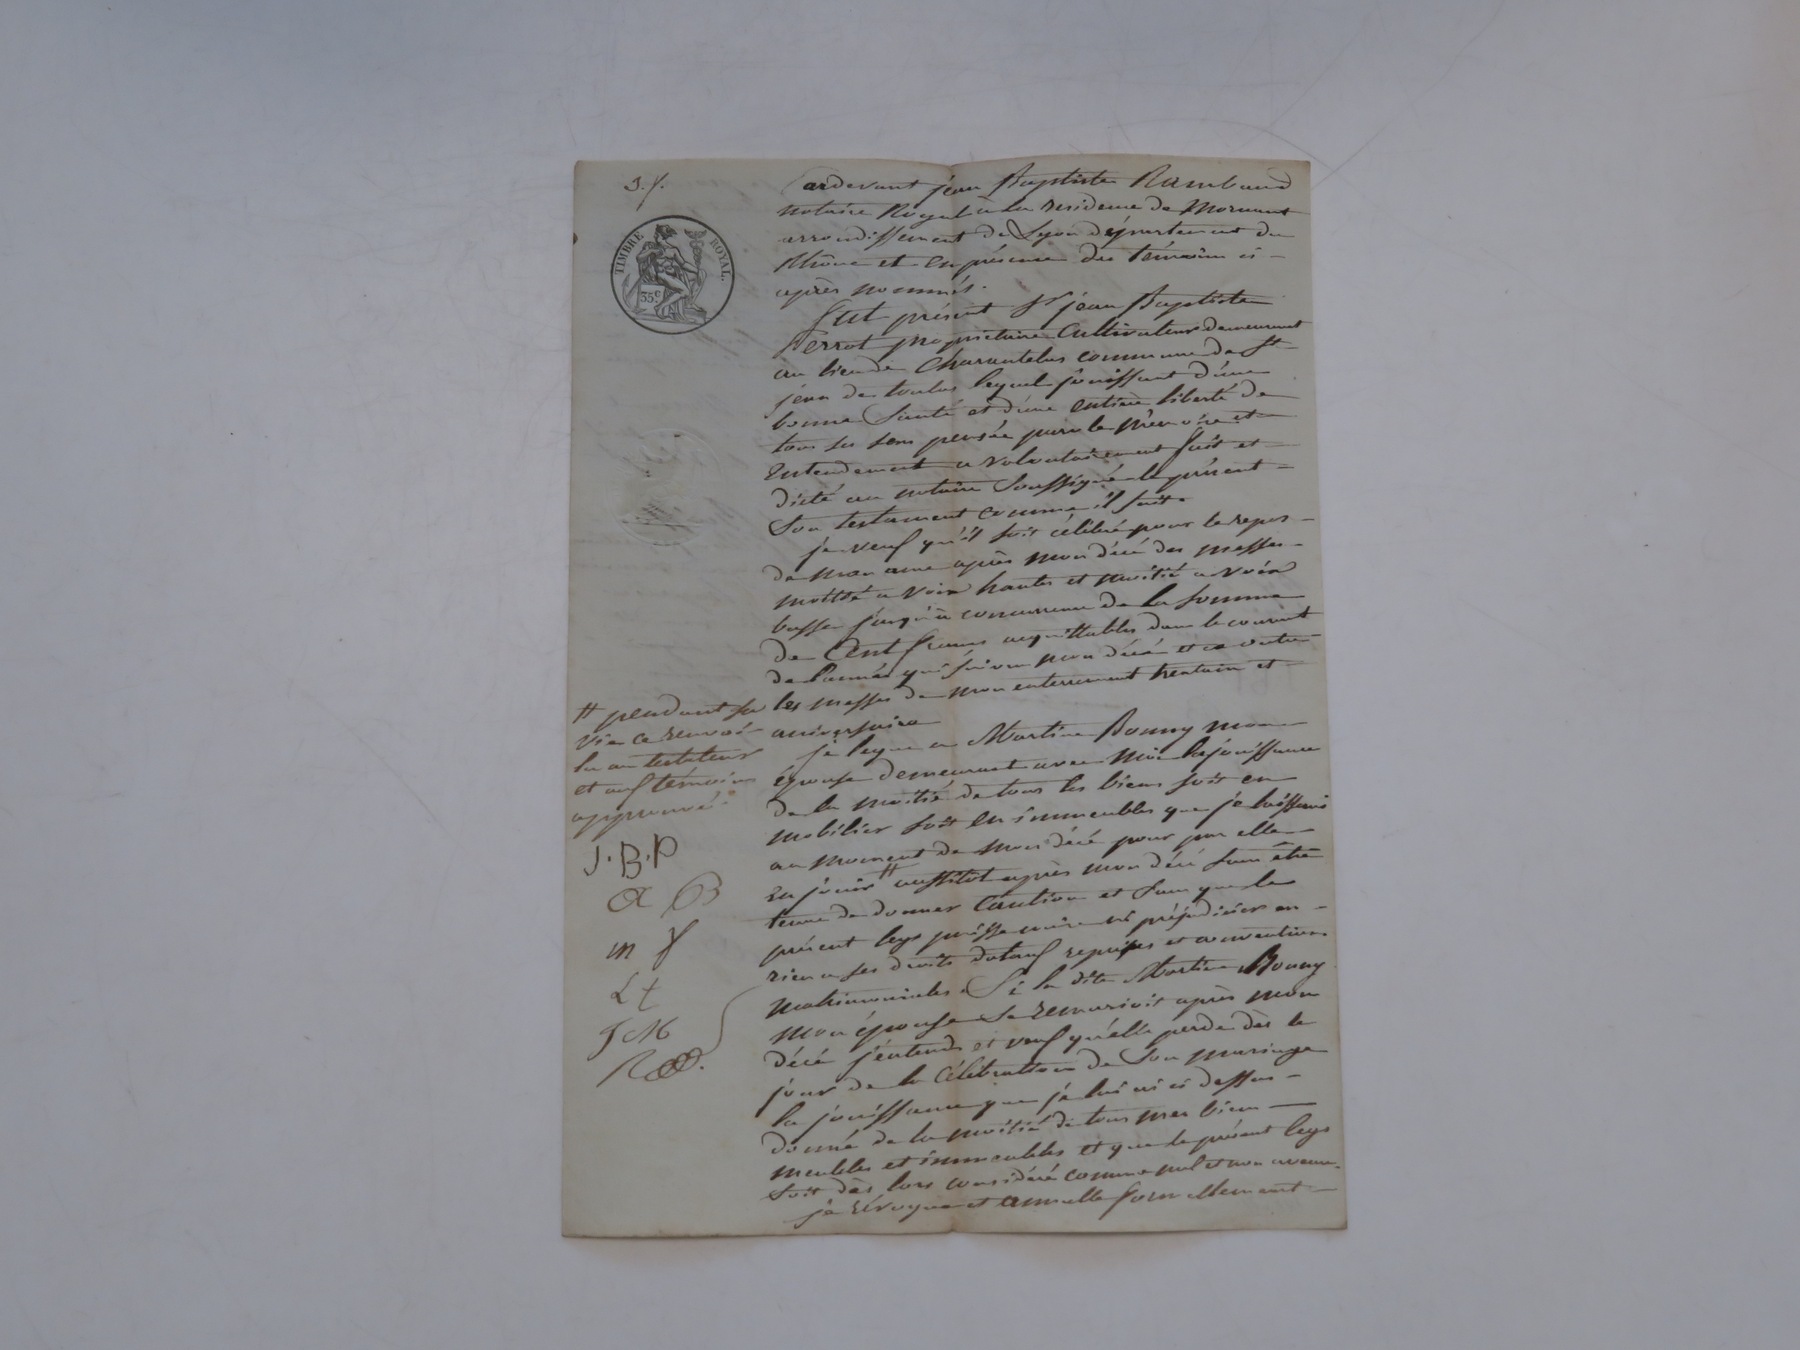 3. f.
TIMBRE ROYAL.
35c
Pardevant jean Baptiste Rambaud
notaire Royal à la residence de Mornant
arrondissement de Lyon département du
Rhône et en présence des témoins ci-
après nommés.
fut présent Sr jean Baptiste
Perrot propriétaire Cultivateur demeurant
au lieu de Charantelus commune de St
jean de toulas lequel jouissant d'une
bonne Santé et d'une entière liberté de
tous ses sens pensée parole mémoire et
Entendement a volontairement fait et
dicté au notaire Soussigné le présent
Son testament comme il suit.
je veux qu'il soit célébré pour le repos
de mon ame après mon décé des messes
moitié a voix hautes et moitié a voix
basse jusqu'à concurrence de la somme
de Cent francs acquittables dans le courant
de l'année qui suivra mon décé et ce outre
les messes de mon enterrement trentain et
aniversaire
je legue a Martine Bonny mon
épouse demeurant avec moi la jouissance
de la moitié de tous les biens soit en
mobilier soit en immeubles que je laisserai
au moment de mon décé pour par elle
En jouir # aussitot après mon décé sans être
tenue de donner Caution et sans que le
présent legs puisse nuire ni préjudicier en
rien a ses droits dotaux reprises et conventions
matrimoniales. Si la dite Martine Bonny
mon épouse se remarioit après mon
décé j'entends et veux qu'elle perde dès le
jour de la Célébration de Son mariage
la jouissance que je lui ai ci dessus
donné de la moitié de tous mes biens
meubles et immeubles et que le présent legs
soit dès lors considéré comme nul et non avenu.
je révoque et annulle formellement
# pendant sa
vie ce renvoi
lu au testateur
et aux témoins
approuvé.
J.B.P
a B
m f
L t
J M
R